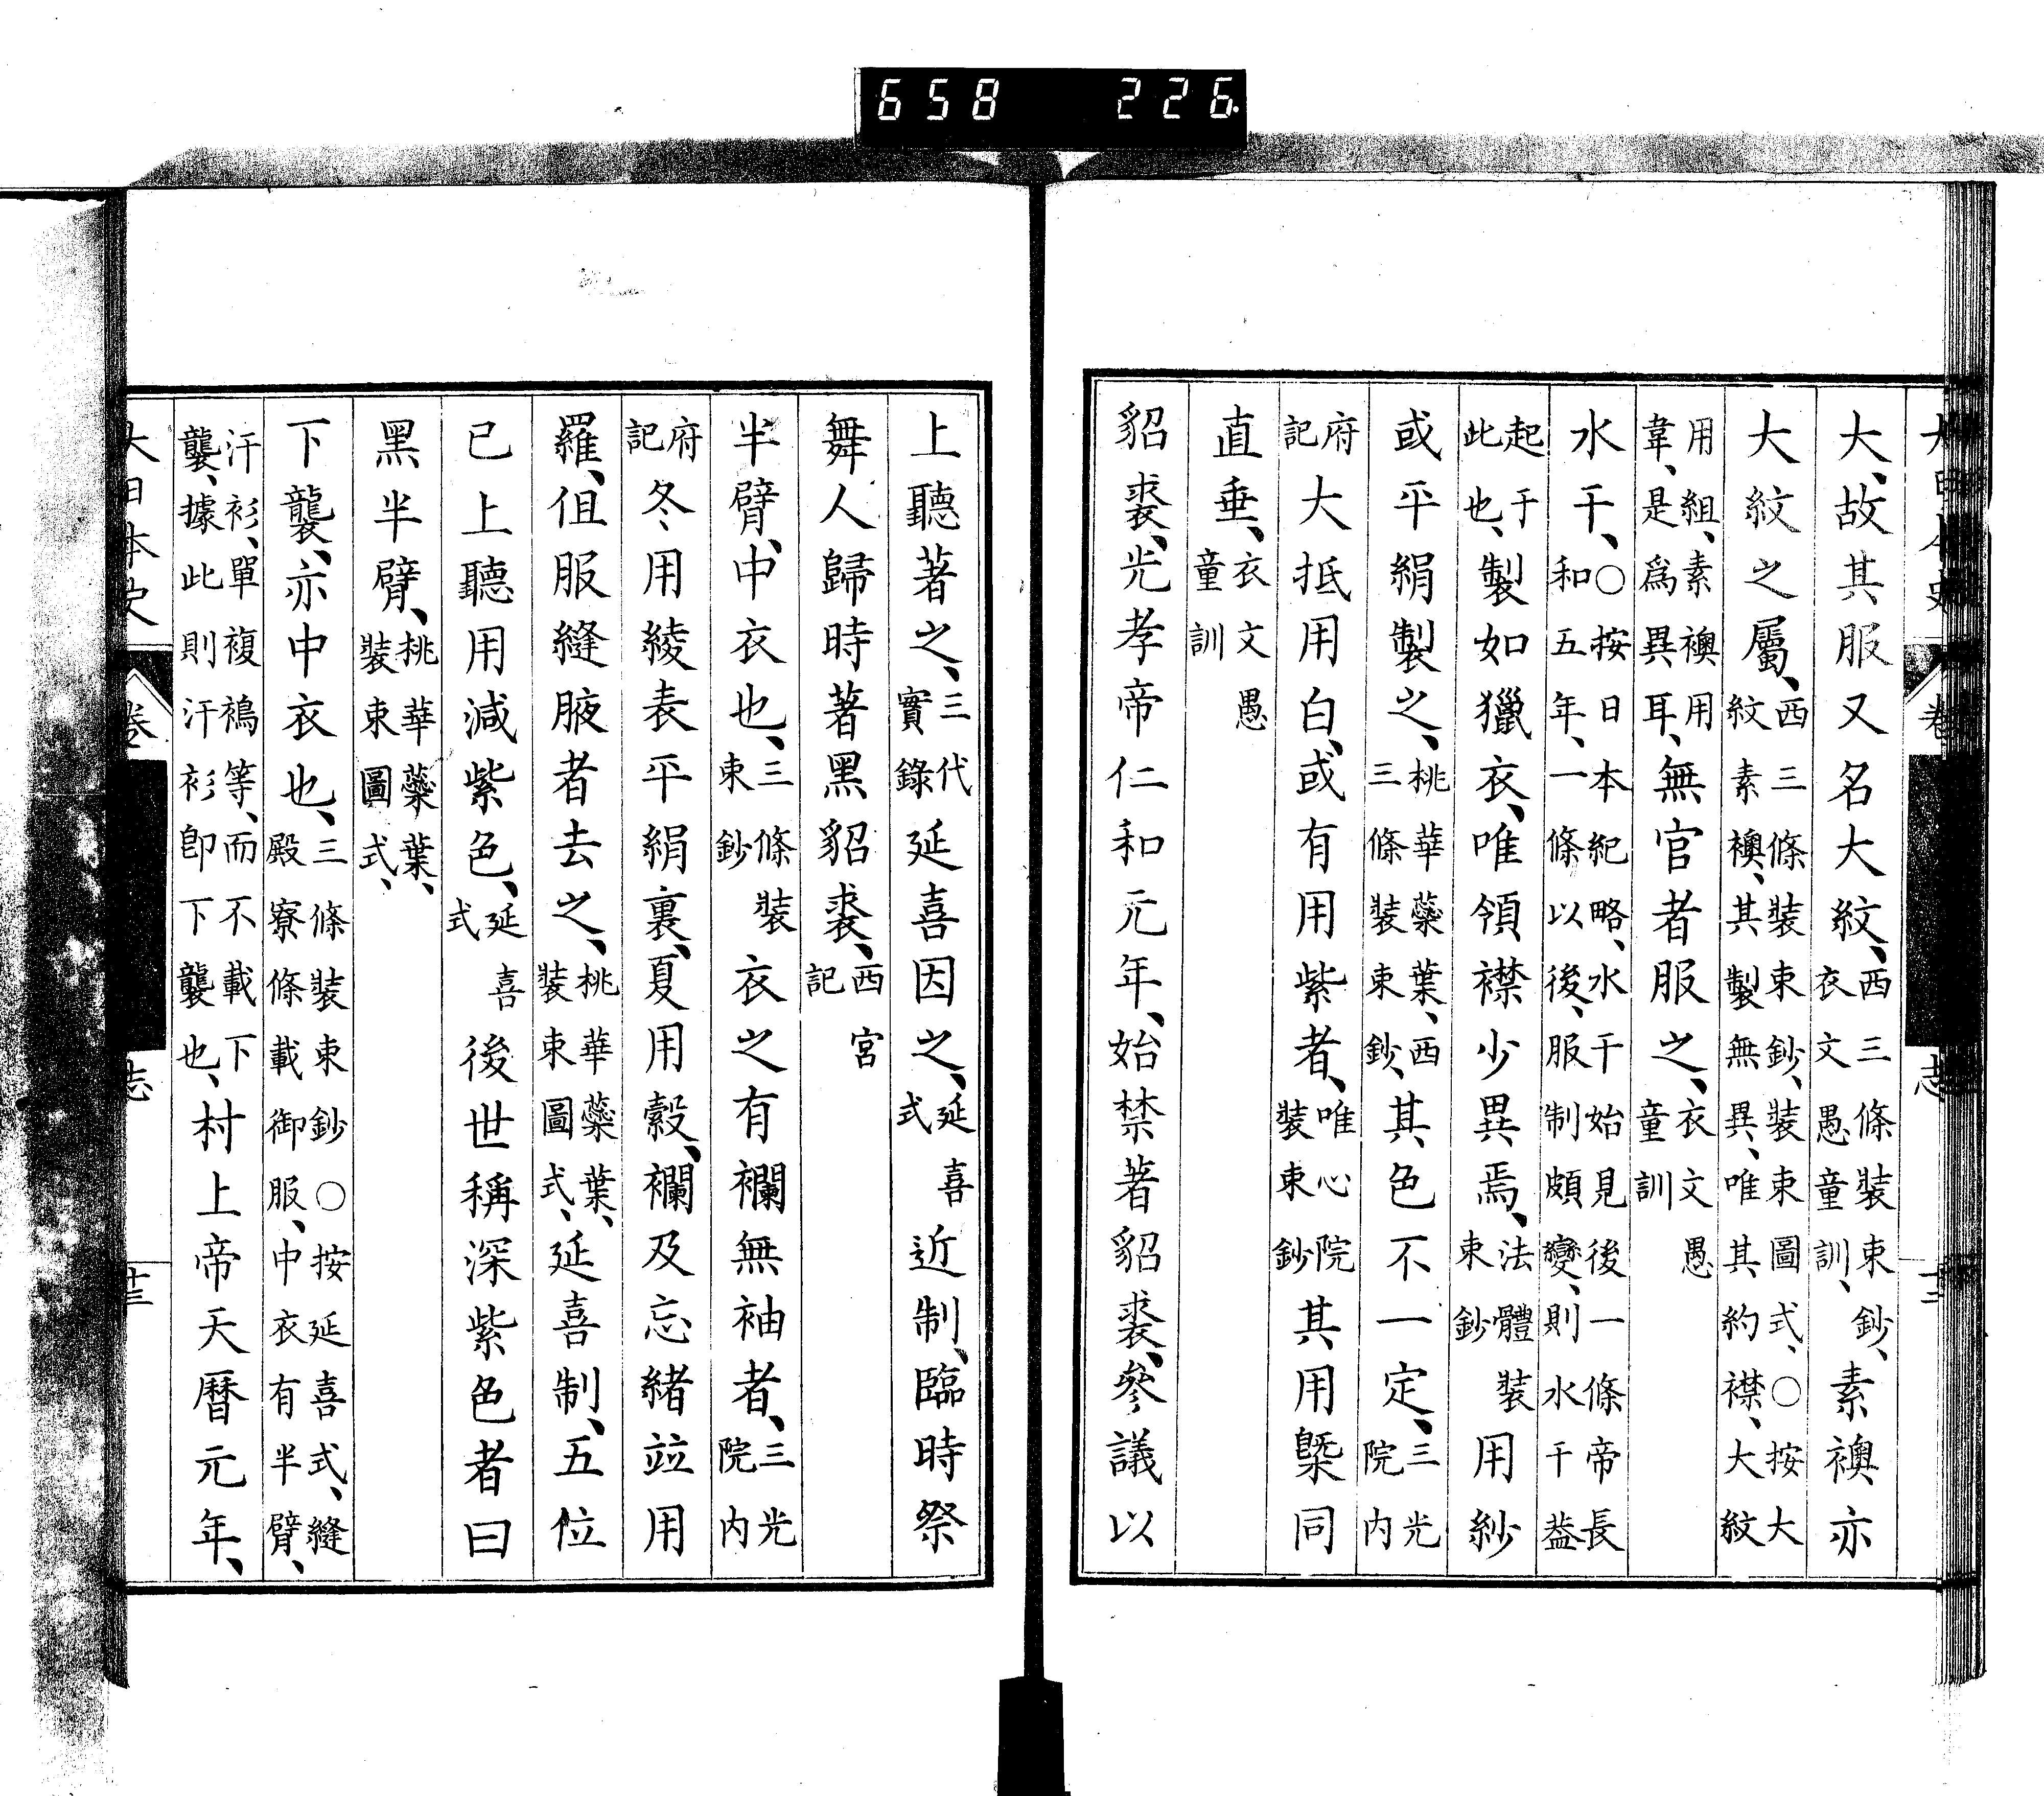 大日本史 卷 志 十二
大、故其服又名大紋、西三條裝束鈔、衣文愚童訓、素襖亦
大紋之屬、西三條裝束鈔、裝束圖式、○按大紋素襖、其製無異、唯其約襟、大紋
用組、素襖用韋、是爲異耳、無官者服之、衣文愚童訓
水干、○按日本紀略、水干始見後一條帝長和五年、一條以後、服制頗變、則水干蓋
起于此也、製如獵衣、唯領襟少異焉、法體裝束鈔用紗
或平絹製之、桃華蘂葉、西三條裝束鈔、其色不一定、三光院内
府記大抵用白、或有用紫者、唯心院裝束鈔其用槩同
直垂、衣文愚童訓
貂裘、光孝帝仁和元年、始禁著貂裘、參議以
上聽著之、三代實錄延喜因之、延喜式近制、臨時祭
舞人歸時著黑貂裘、西宮記
半臂、中衣也、三條裝束鈔衣之有襴無袖者、三光院内
府記冬用綾表平絹裏、夏用縠、襴及忘緒竝用
羅、但服縫腋者去之、桃華蘂葉、裝束圖式、延喜制、五位
已上聽用減紫色、延喜式後世稱深紫色者曰
黑半臂、桃華蘂葉、裝束圖式、
下襲、亦中衣也、三條裝束鈔○按延喜式、縫殿寮條載御服、中衣有半臂、
汗衫、單複䙚等、而不載下襲、據此則汗衫卽下襲也、村上帝天曆元年、
大日本史 卷 志 十三
658 226